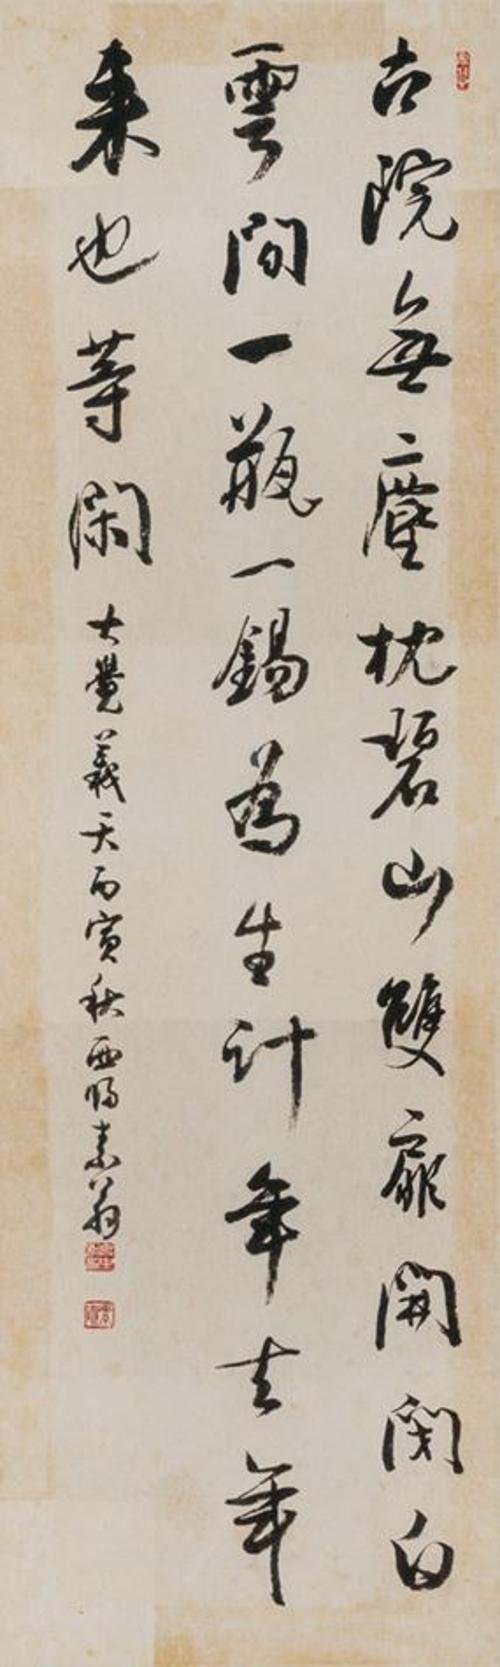 古院無塵枕碧山雙扉開閉白
雲間一瓶一錫為生計年去年
来也等閑
大覺義天丙寅秋西場素翁